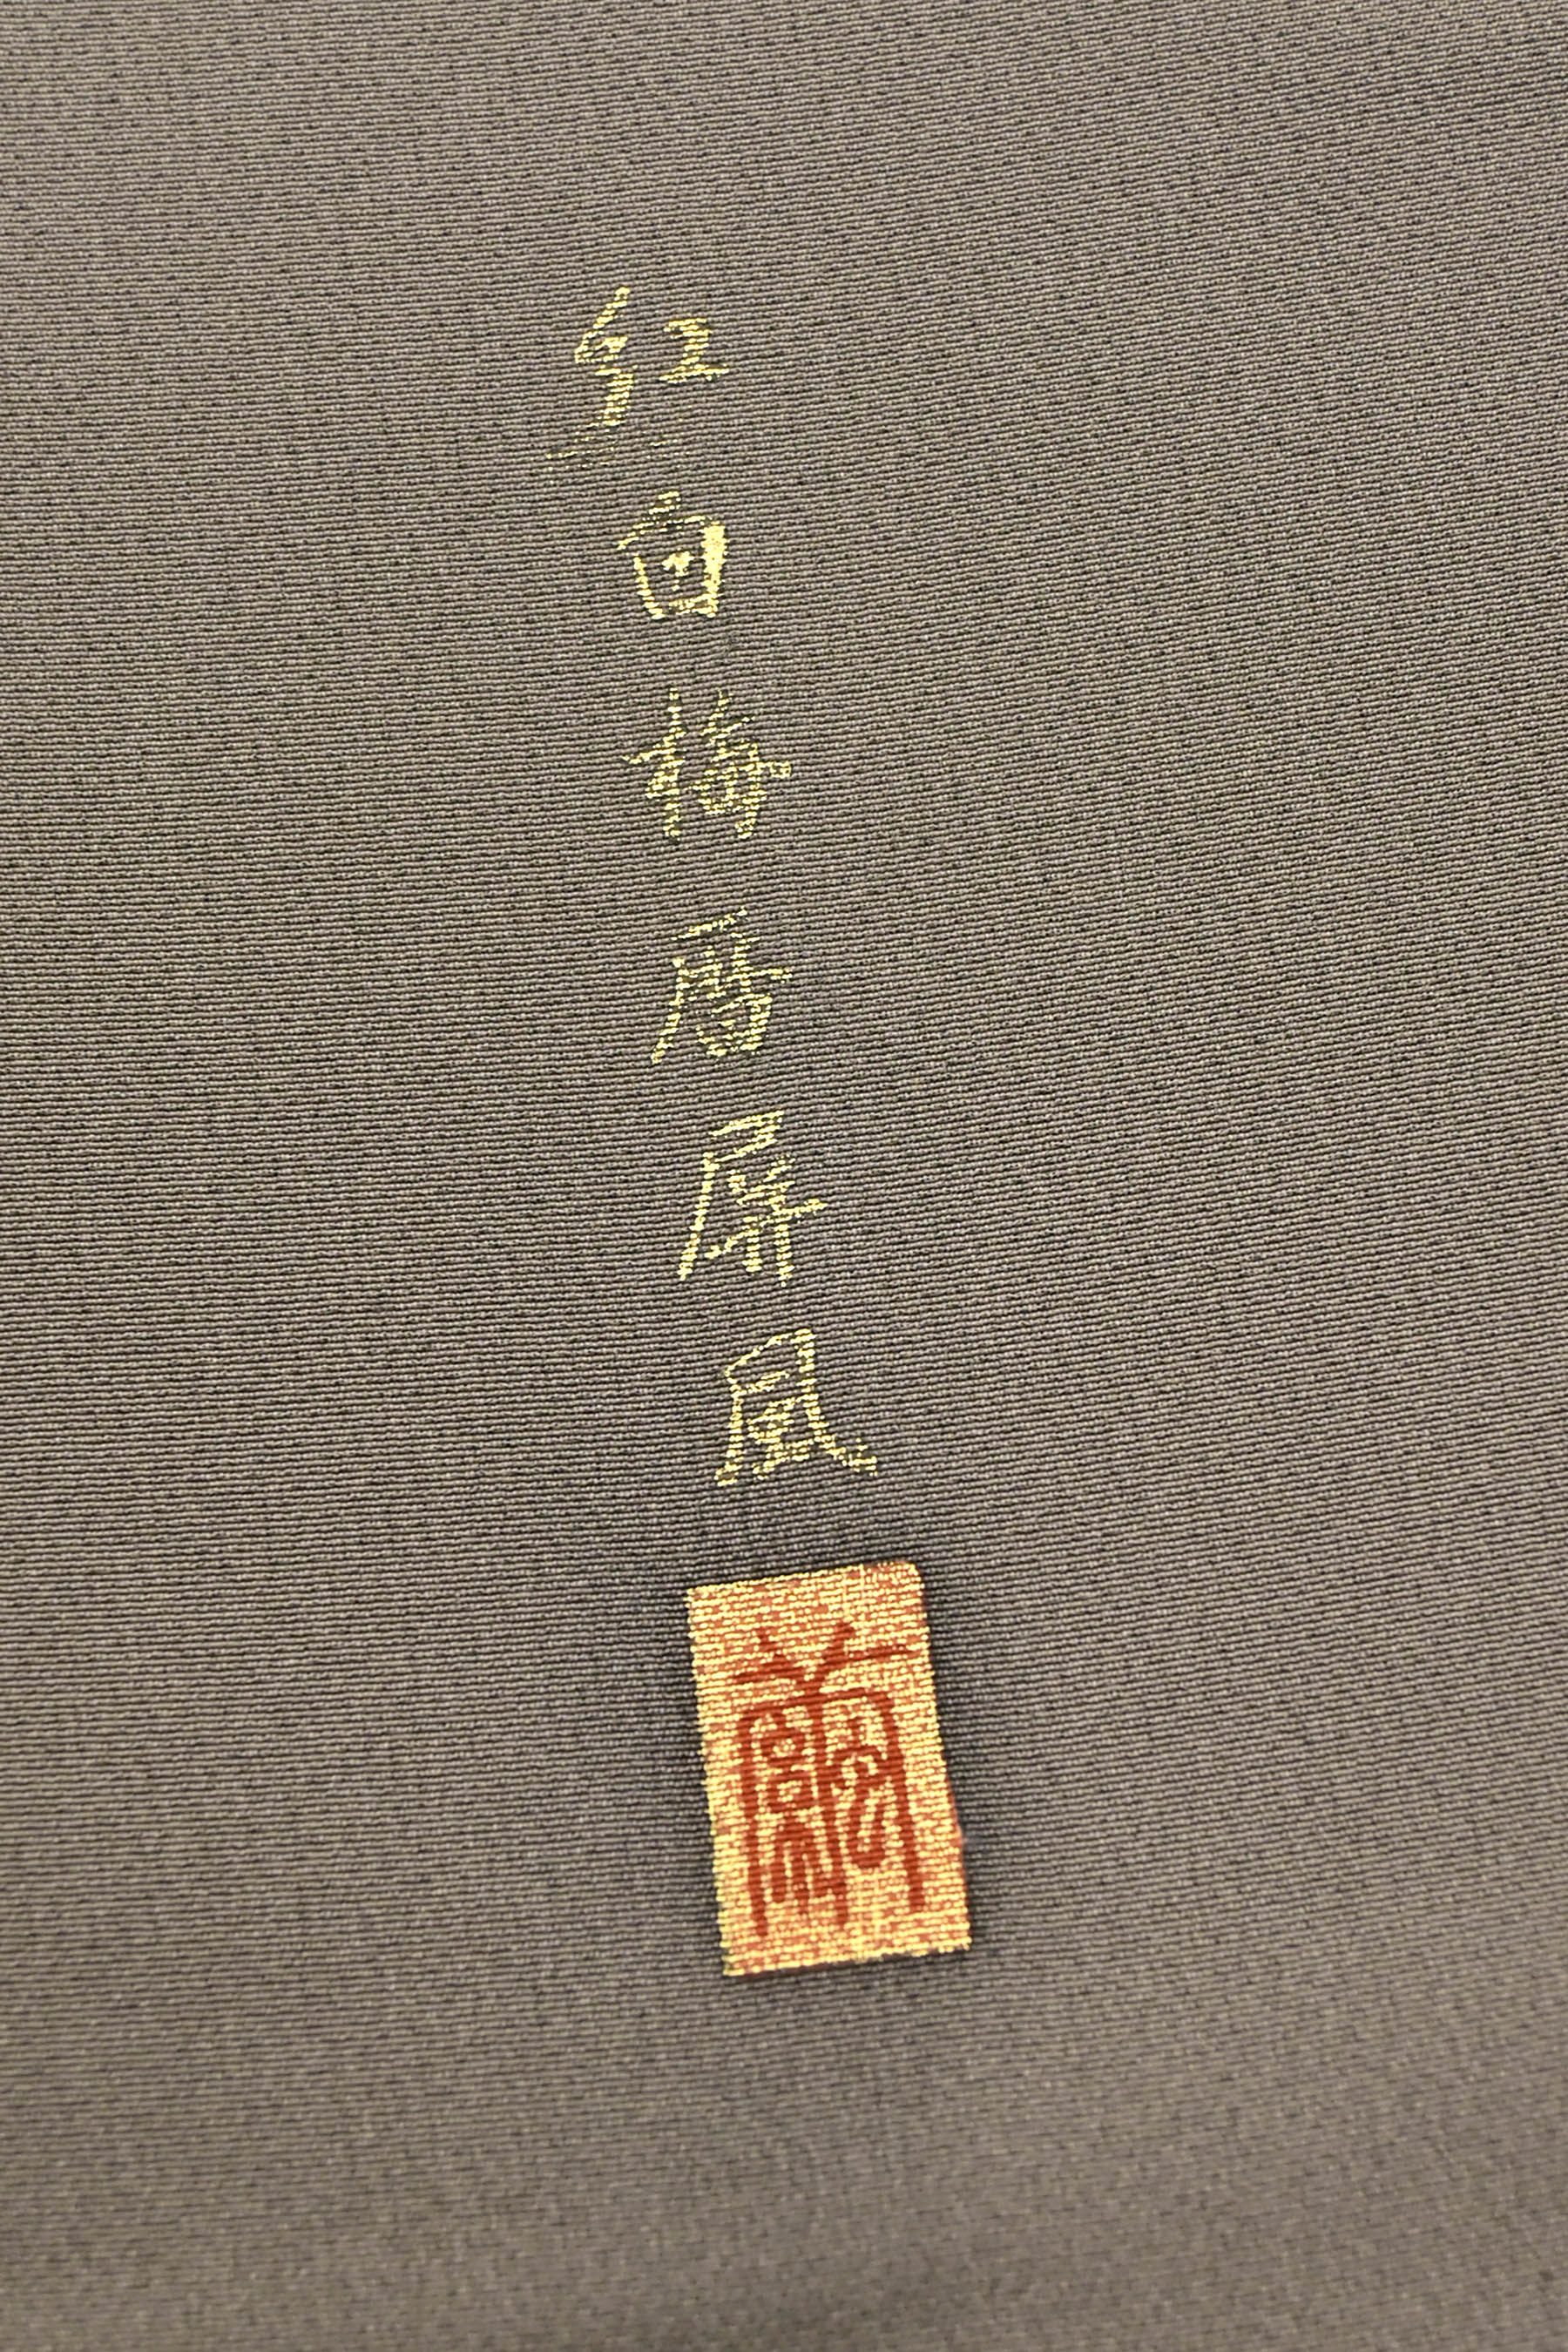 紅白梅屏風